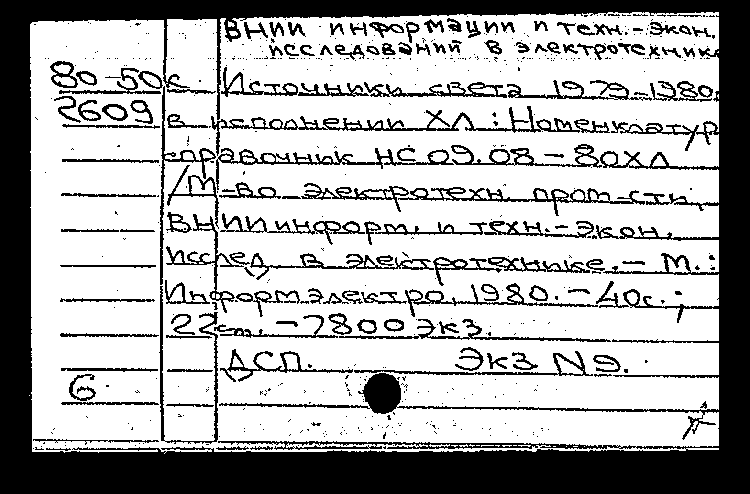 ВНИИ информации и техн.-экон.
исследований в электротехнике
80-50с Источники света 1979-1980:
2609 в исполнении ХЛ: Номенклатур
справочник НС 09.08-80ХЛ
/М-во электротехн. пром-сти,
ВНИИ информ. и техн.-экон.
исслед. в электротехнике.- М.:
Информэлектро, 1980.-40с.;
22см.-7800 экз.
ДСП. Экз N9.
6